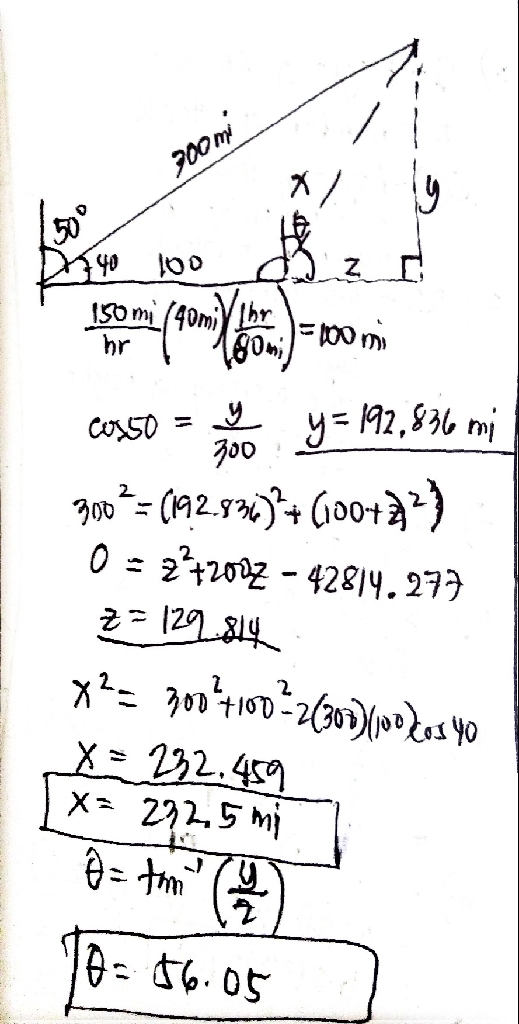 300 mi
x
y
50°
θ
40 100 z
150 mi/hr (40 mi)(1hr/60 mi) = 100 mi
cos50 = y/300 y = 192.836 mi
300² = (192.836)² + (100+z²)
0 = z² + 200z - 42814.277
z = 129.814
x² = 300² + 100² - 2(300)(100)cos 40
x = 232.459
x = 232.5 mi
θ = tan⁻¹ (y/z)
θ = 56.05